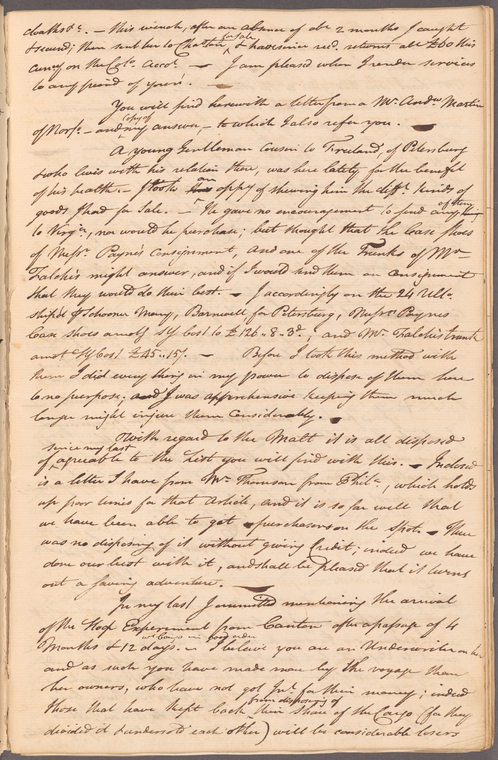 cloaths &c. – this wench, after an absence of abt 2 months I caught
& secured; then sent her to Cha:ston for sale & have since recd. returns abt £60 this
Curcy on the Co:ts Acco:t – I am pleased when I render services
to any friend of yours.
You will find herewith a letter from a Mr. Andw. Martin
of Norfo. – and copy of my answer, – to which I also refer you. –
A young Gentleman Cousin to Freeland of Petersburg
& who lives with his relation there, was here lately, for the benefit
of his health. – I took an oppy of shewing him the difft. kinds of
goods I had for Sale. – He gave no encouragement to send any of them
to Virga., nor would he purchase; but thought that the Case Shoes
of Messrs. Payne's Consignment, and one of the Trunks of Mr.
Falchis might answer, and if I would send them on Consignment
that they would do their best. – I accordingly on the 24 Ullo.
shipd. p Schooner Mary, Barnwell for Petersburg, Messrs. Paynes
Case shoes amots. Stg Cost to £126..8..3d.; and Mr. Falchis trunk
amot Stg Cost £45..15/. – Before I took this method with
them I did every thing in my power to dispose of them here
to no purpose; and I was apprehensive keeping them much
longer might injure them Considerably. –
With regard to the Malt it is all disposed
of since my last agreeable to the List you will find with this. – Inclosed
is a letter I have from Mr. Thomson from Phila., which holds
up poor times for that Article, and it is so far well that
we have been able to get purchasers on the Spot. – There
was no disposing of it without giving Credit; indeed we have
done our best with it, and shall be pleased that it turns
out a saving adventure. –
In my last I ommitted mentioning the arrival
of the Hope Experiment from Canton after a passage of 4
Months & 12 days. – I believe you are an Underwriter on her
and as such you have made more by the voyage than
her owners, who have not got Int. for their money; indeed
those that have kept back from disposing of their Share of the Cargo (for they
divided & undersold each other) will be considerable losers